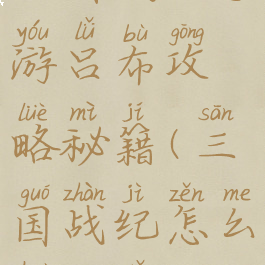 yóu lǚ bù gōng
游吕布攻
lüè mì jí sān
略秘籍(三
guó zhàn jì zěn me
国战纪怎么